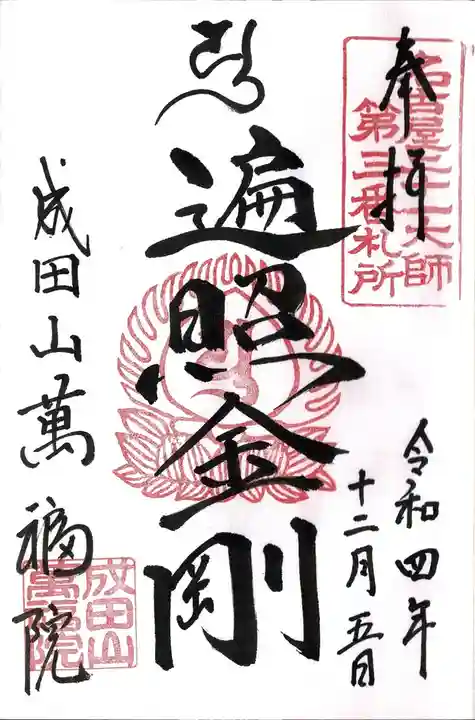 奉拝
名古屋二十一大師
第三番札所
遍照金剛
令和四年
十二月五日
成田山萬福院
成田山
萬福院